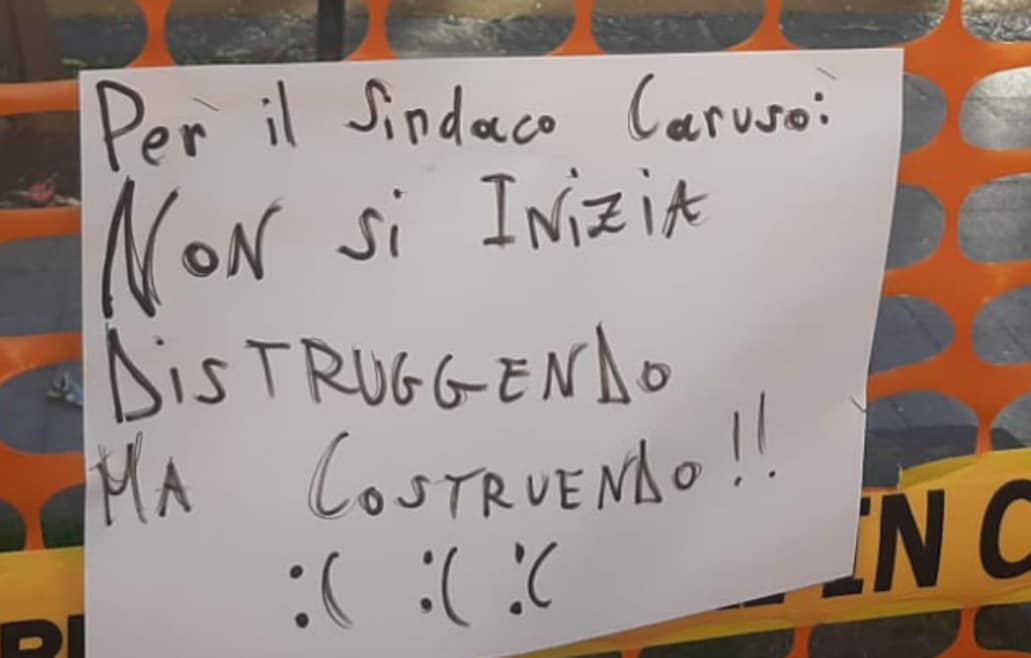 Per il Sindaco Caruso:
NON Si INiZiA
DiSTRUGGENDO
MA COSTRUENDO!!
:( :( :'(
IN C